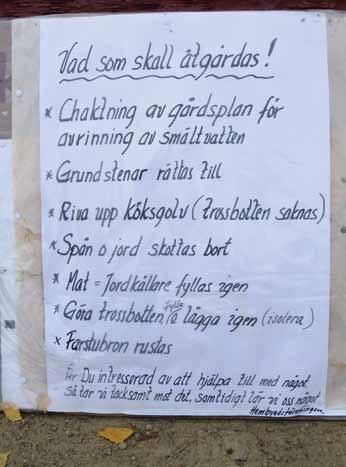 Vad som skall åtgärdas!
* Chaktning av gårdsplan för
avrinning av smältvatten
* Grundstenar rättas till
* Riva upp köksgolv (trossbotten saknas)
* Spån o jord skottas bort
* Mat = Jordkällare fyllas igen
* Göra trossbotten, fylla o lägga igen (isolera)
* Farstubron rustas
Är Du intresserad av att hjälpa till med något
så tar vi tacksamt mot det, samtidigt lär vi oss något
Hembygdsföreningen